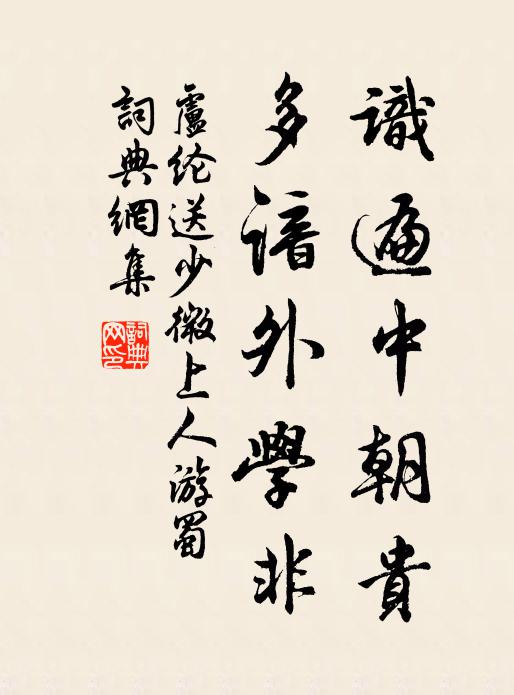 識遍中朝貴
多諳外學非
盧纶送少微上人游蜀
詞典網集
詞典网印